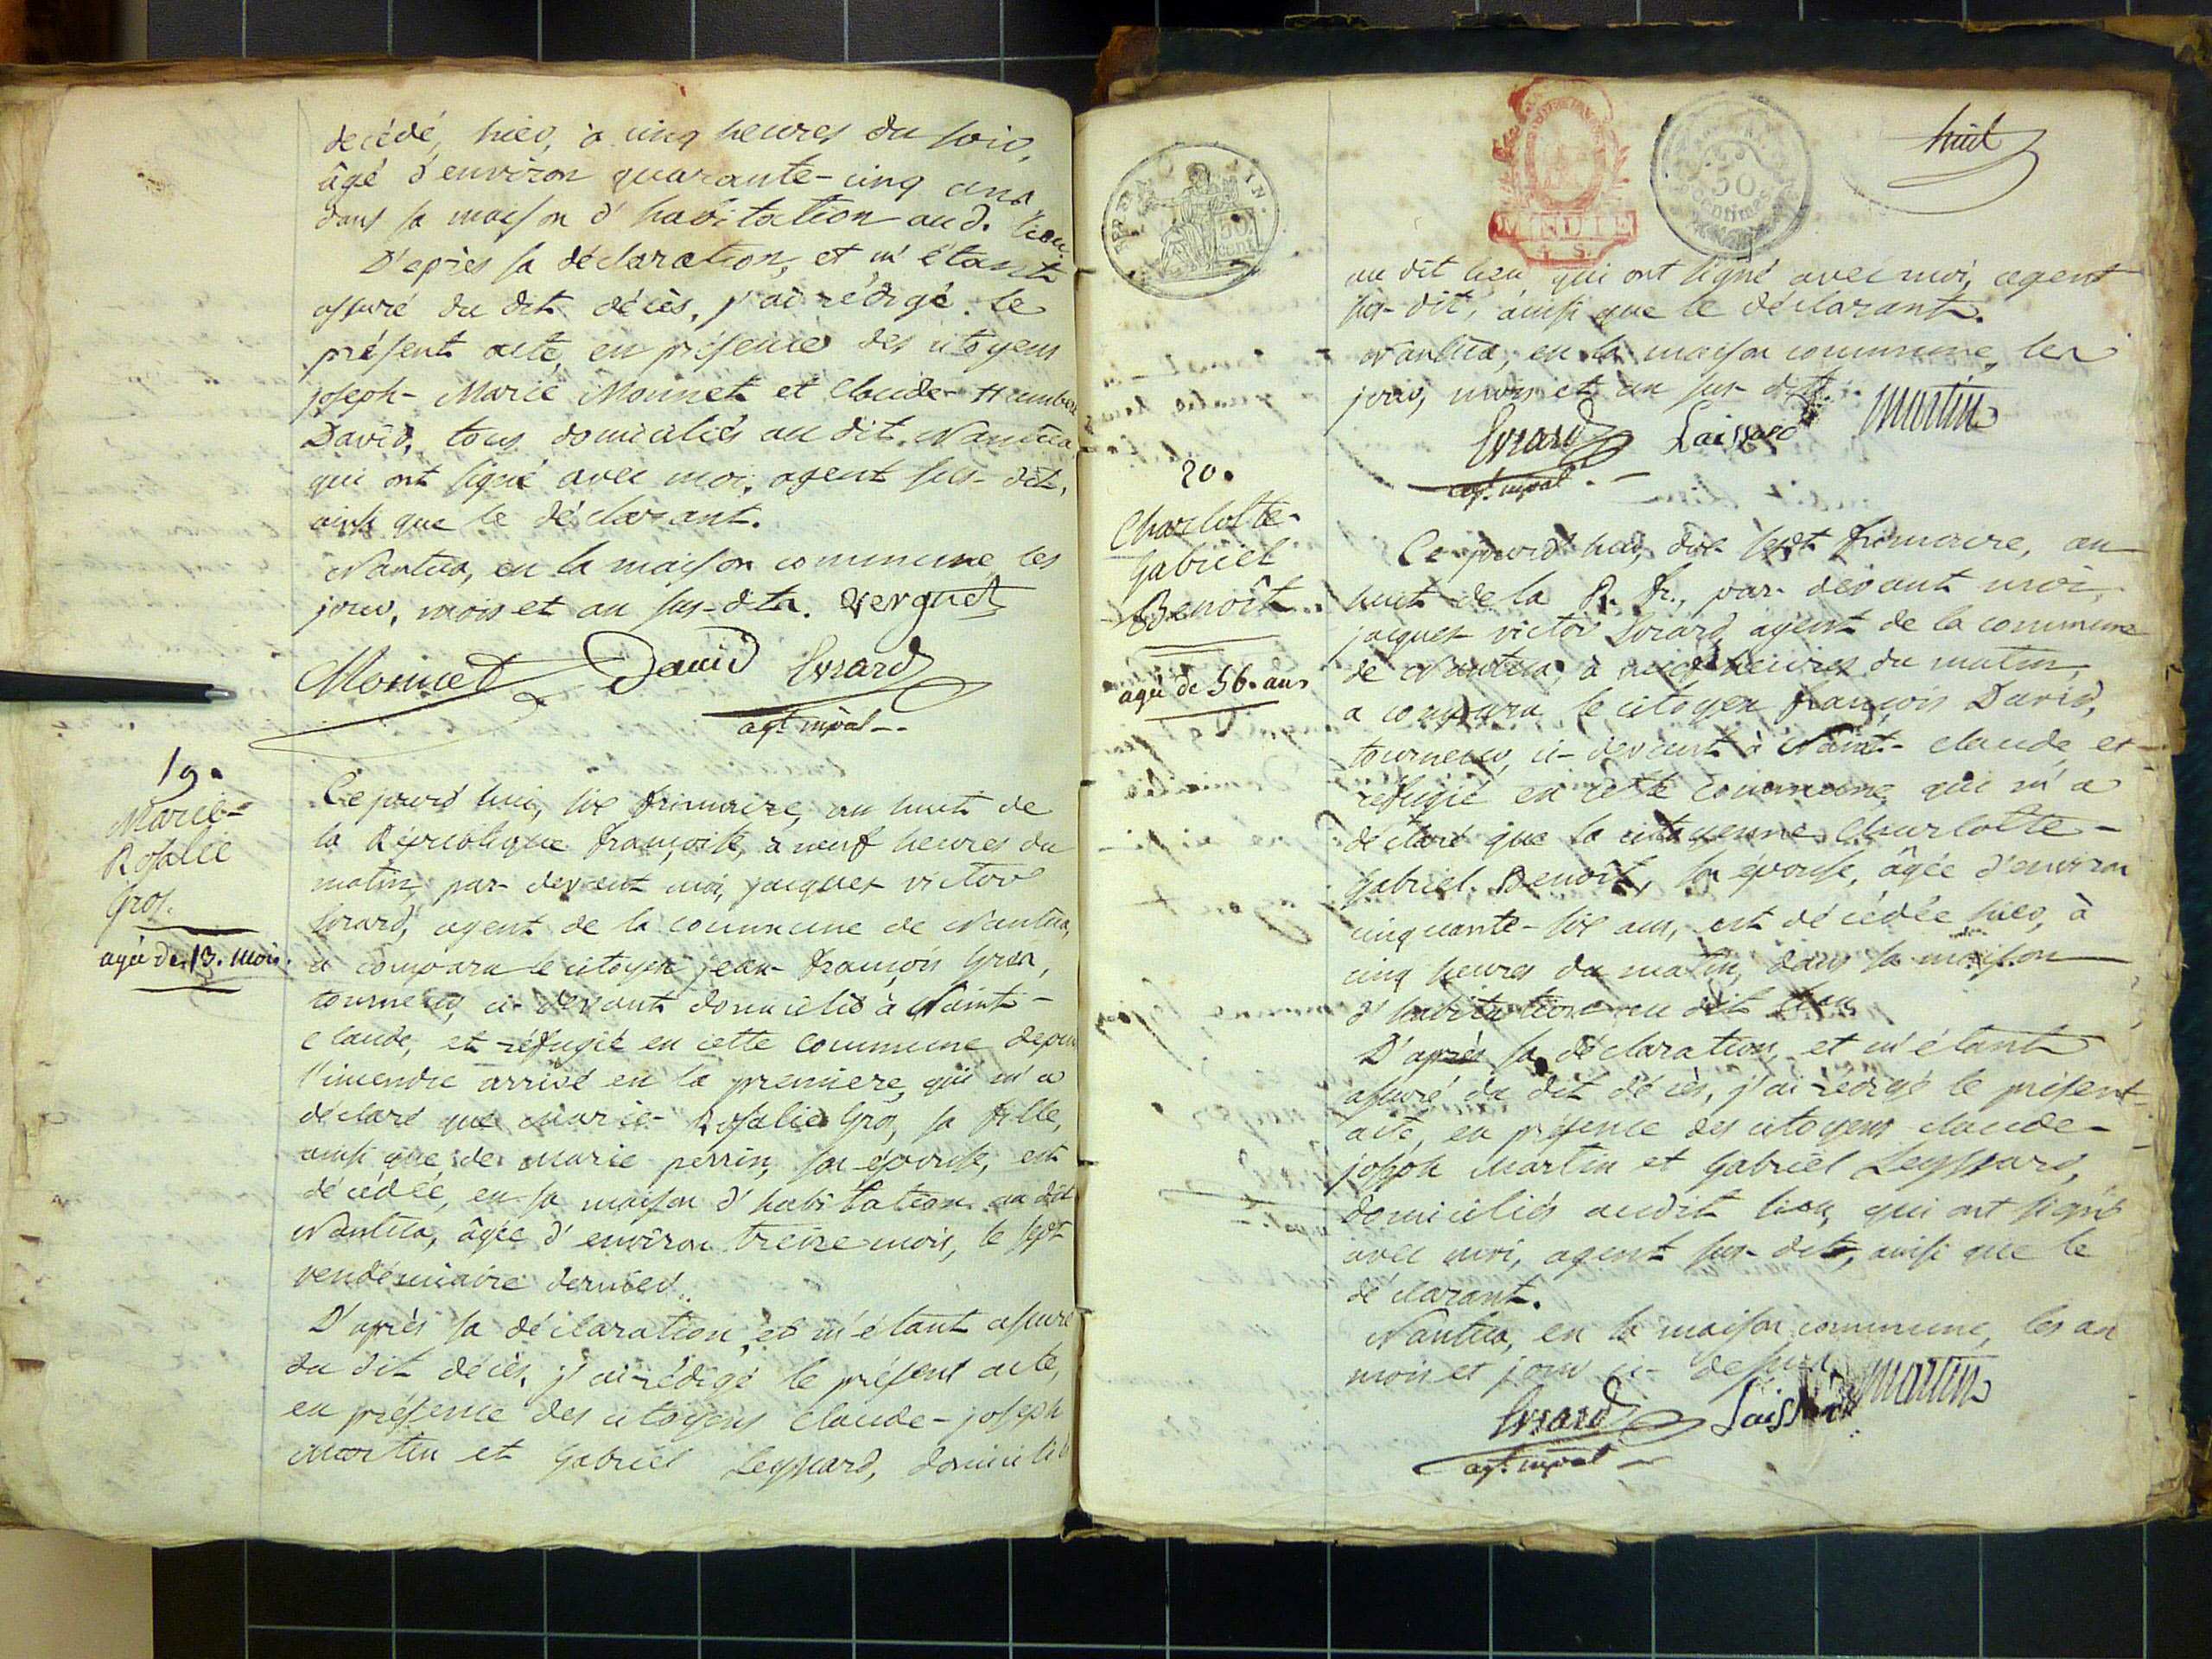 decédé, hier, à cinq heures du soir,
âgé d'environ quarante-cinq ans,
dans sa maison d'habitation aud. lieu.
D'après sa déclaration, et m'étant
assuré du dit décès, j'ai rédigé le
présent acte, en présence des citoyens
joseph-Marie Monnet et Claude-Humbert
David, tous domiciliés au dit Nantua,
qui ont signé avec moi, agent sus-dit,
ainsi que le déclarant.
Nantua, en la maison commune, les
jour, mois et an sus-dits. Verguet
Monnet David Evrard
agt. mpal
19.
Marie-
Rosalie
Gros.
agée de 13. mois.
Ce jourd'hui, six frimaire, an huit de
la République française, à neuf heures du
matin, par-devant moi, jacques victor
Evrard, agent de la commune de Nantua,
a comparu le citoyen jean-françois Gros,
tourneur, ci-devant domicilié à Saint-
Claude, et réfugié en cette commune depuis
l'incendie arrivé en la première, qui m'a
déclaré que Marie-Rosalie Gros, sa fille,
ainsi que de Marie perrin, son épouse, est
décédée, en sa maison d'habitation au dit
Nantua, âgée d'environ treize mois, le sept
vendémiaire dernier.
D'après sa déclaration, et m'étant assuré
du dit décès, j'ai rédigé le présent acte,
en présence des citoyens Claude-joseph
Martin et Gabriel Leyssard, domiciliés
huit
50
cent
50
centimes
au dit lieu, qui ont signé avec moi, agent
sus-dit, ainsi que le déclarant.
Nantua, en la maison commune, les
jour, mois et an sus-dits.
Evrard Laissard Martin
agt. mpal
20.
Charlotte-
Gabriel
Benoît.
agée de 56. ans
Ce jourd'hui, dix sept frimaire, an
huit de la R. fr., par-devant moi,
jacques victor Evrard, agent de la commune
de Nantua, à neuf heures du matin,
a comparu le citoyen françois David,
tourneur, ci-devant à Saint-Claude, et
réfugié en cette commune, qui m'a
déclaré que la citoyenne Charlotte-
Gabriel Benoît, son épouse, âgée d'environ
cinquante-six ans, est décédée hier, à
cinq heures du matin, dans sa maison
d'habitation au dit lieu.
D'après sa déclaration, et m'étant
assuré du dit décès, j'ai redigé le présent
acte, en présence des citoyens Claude-
joseph Martin et Gabriel Leyssard,
domiciliés audit lieu, qui ont signé
avec moi, agent sus-dit, ainsi que le
déclarant.
Nantua, en la maison commune, les an
mois et jour ci-dessus.
Evrard Laissard Martin
agt. mpal